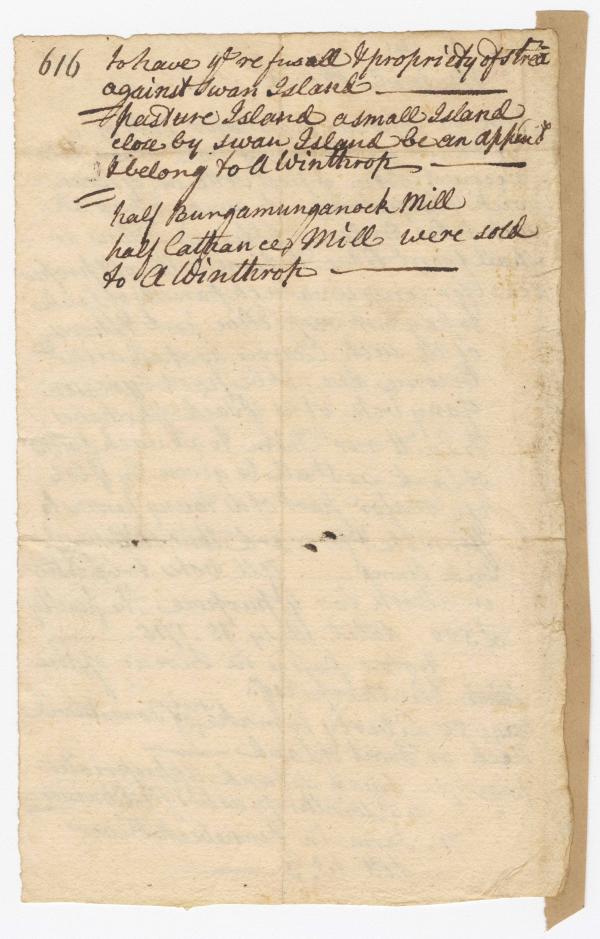 616 to have ye refusall & propriety of strea
against Swan Island
= pasture Island a small Island
close by swan Island be an append
& belong to A Winthrop
= half Bungamunganock Mill
half Cathance Mill were sold
to A Winthrop